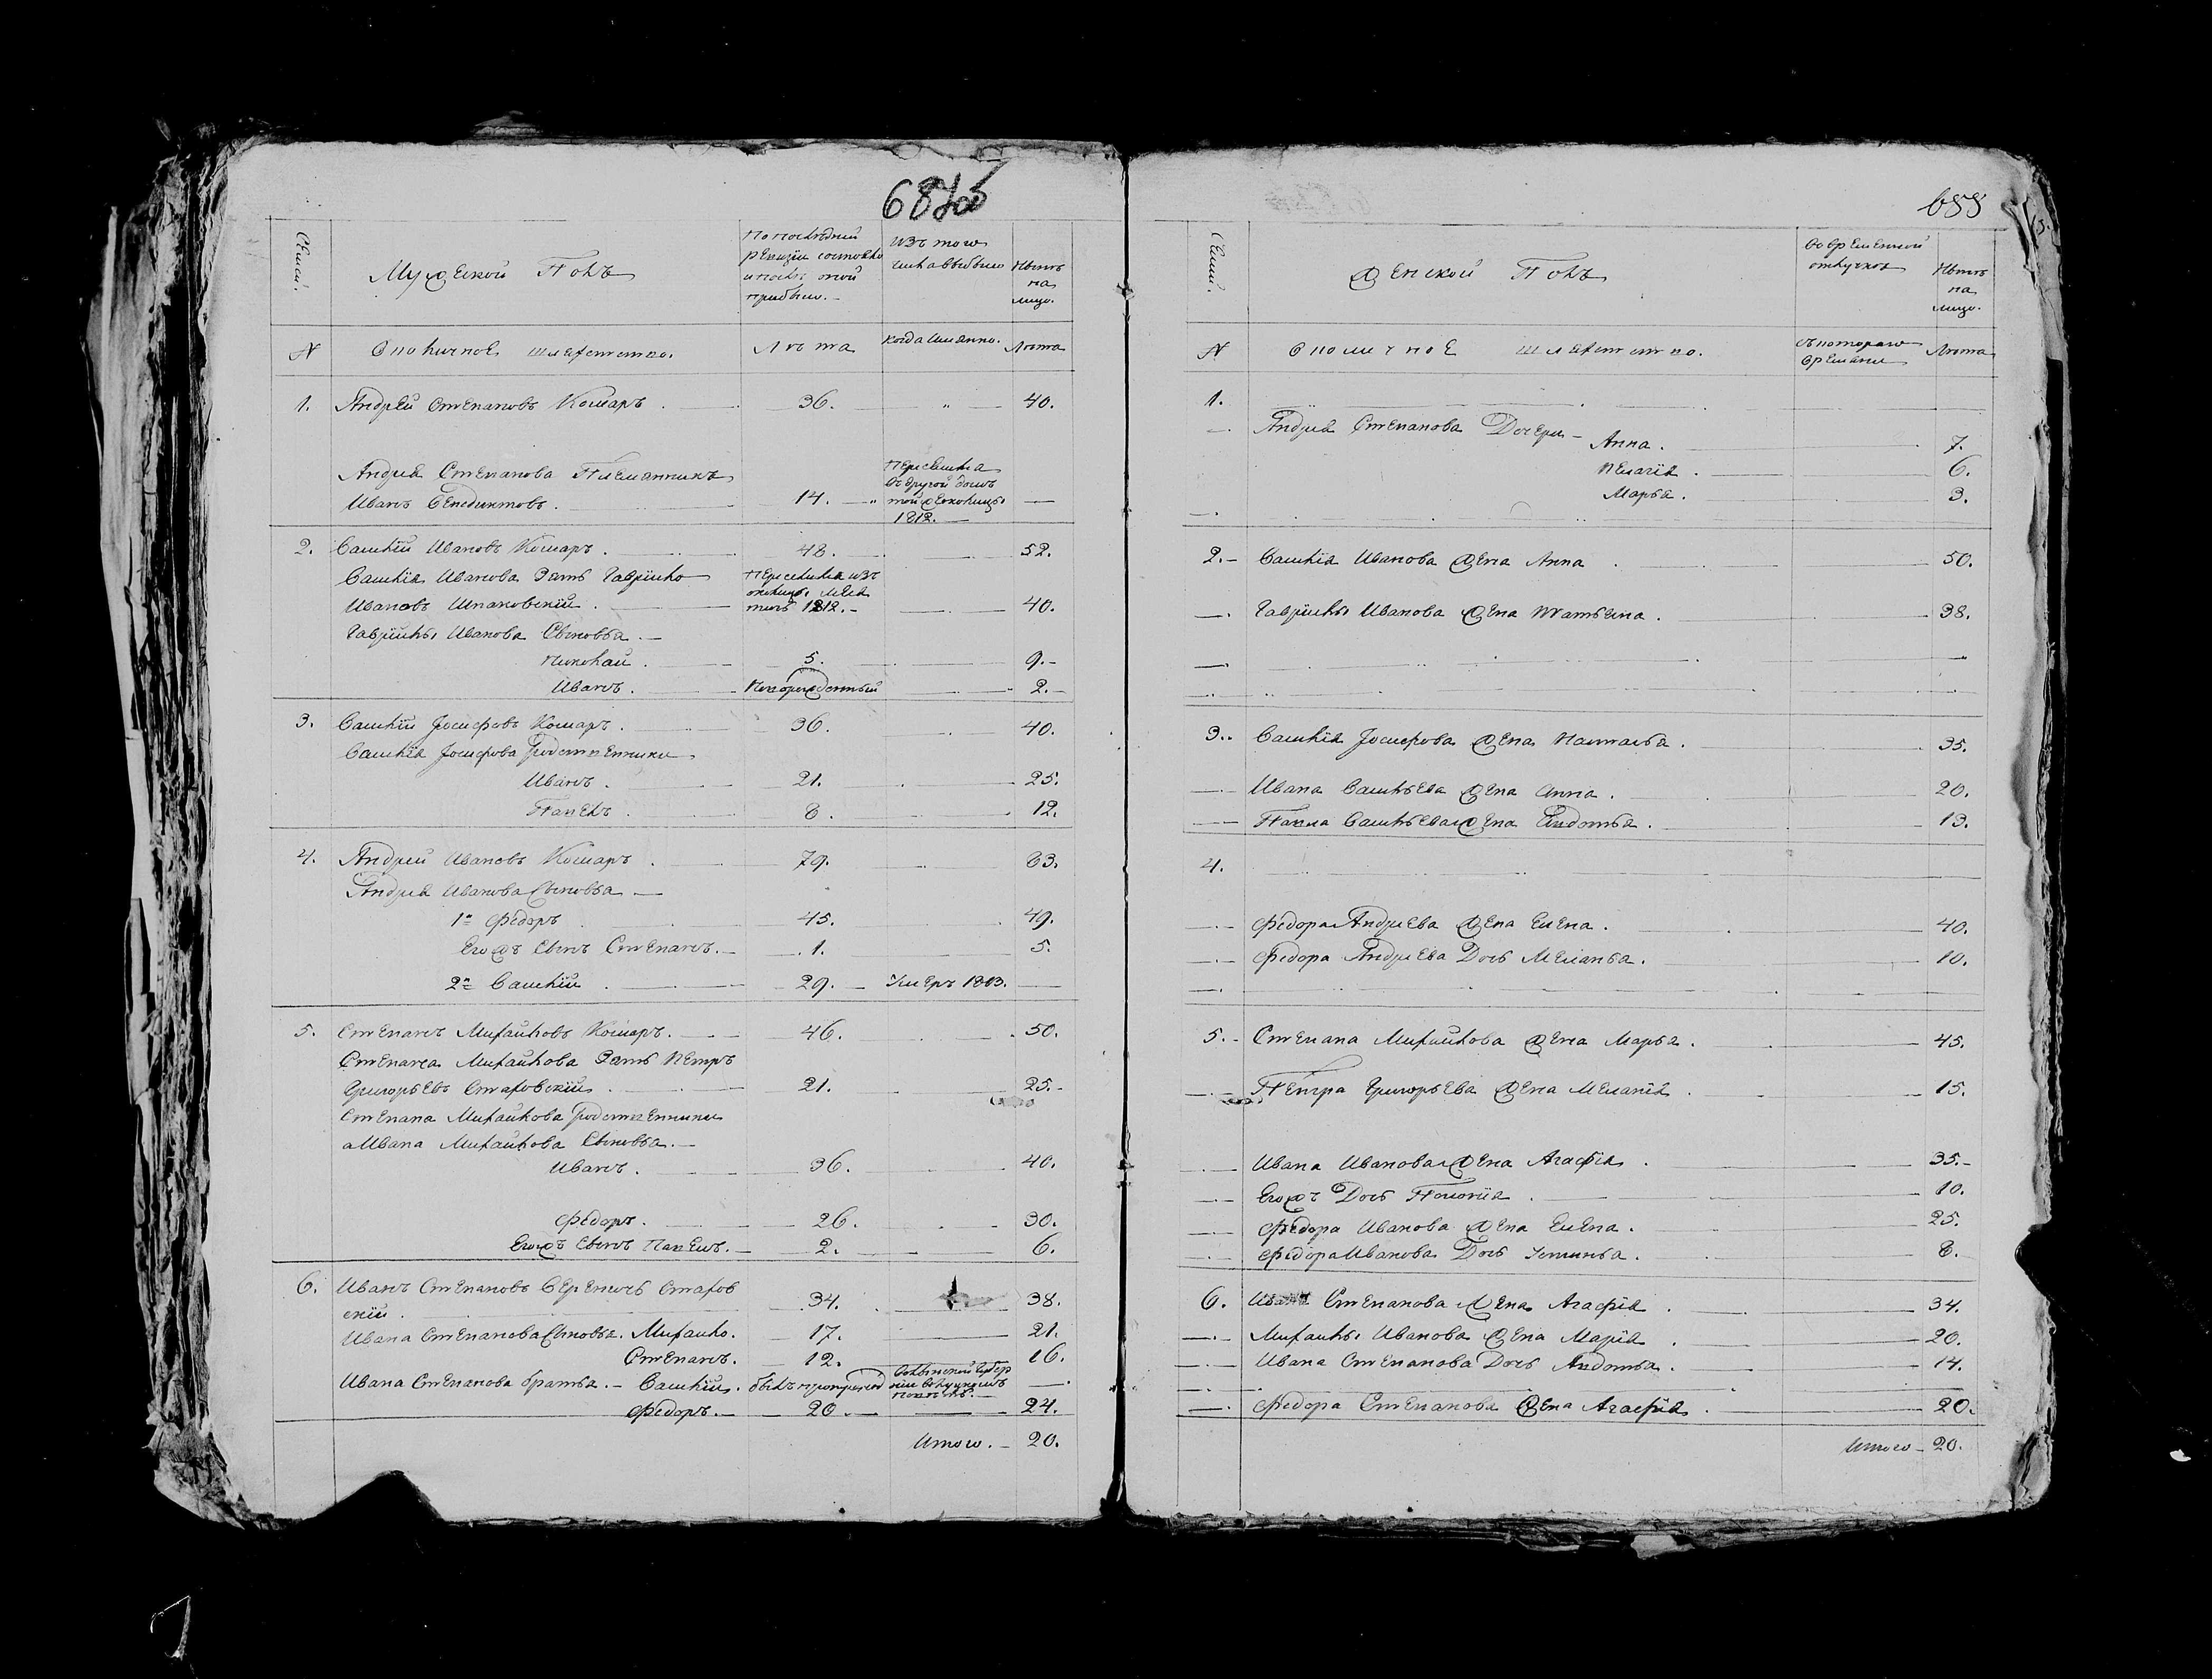 687об
Семьи.
Мужеской Полъ
По последней
ревизіи состояло
и после оной
прибыло.
Изъ того
числа выбыло
Ныне
на
лицо.
№
Околичное шляхетство.
Лѣта
когда имянно.
Лѣта
1. Андрей Степановъ Комаръ. 36. 40.
Андрея Степанова Племянникъ
Иванъ Бенедиктовъ. 14.
1812.
2. Василій Ивановъ Комаръ. 48. 52.
Василія Иванова Зять Гаврило
Ивановъ Шпаковскій. 1812. 40.
Гаврилы Иванова Сыновья.
Николай. 5. 9.
Иванъ. Новорожденный 2.
3. Василій Іосифовъ Комаръ. 36. 40.
Василія Іосифова родственники
Иванъ. 21. 25.
Павелъ. 8. 12.
4. Андрей Ивановъ Комаръ. 79. 83.
Андрея Иванова Сыновья
1й Федоръ 45. 49.
Егожъ Сынъ Степанъ. 1. 5.
2й Василій. 29. Умеръ 1813.
5. Степанъ Михайловъ Комаръ. 46. 50.
Степана Михайлова Зять Петръ
Григорьевъ Стаховскій. 21. 25.
Степана Михайлова родственники
а Ивана Михайлова Сыновья.
Иванъ. 36. 40.
Федоръ. 26. 30.
Егожъ Сынъ Павелъ. 2. 6.
6. Иванъ Степановъ Вереничь Стахов
скій. 34. 38.
Ивана Степанова Сыновья. Михайло. 17. 21.
Степанъ. 12. 16.
Ивана Степанова братья. Василій. былъ пропущенъ
Федоръ. 20. 24.
Итого. 20.
688
Семьи.
Женской Полъ
Во временной
отлучке
Ныне
на
лицо.
№
Околичное шляхетство.
съ котораго
времени
Лѣта
1.
Андрея Степанова Дочери Анна. 7.
Пелагія. 6.
Марья. 3.
2. Василія Иванова Жена Анна. 50.
Гаврилы Иванова Жена Татьяна. 38.
3. Василія Іосифова Жена Наталья. 35.
Ивана Васильева Жена Анна. 20.
Павла Васильева Жена Евдотья. 13.
4.
Федора Андреева Жена Елена. 40.
Федора Андреева Дочь Меланья. 10.
5. Степана Михайлова Жена Марья. 45.
Петра Григорьева Жена Меланія. 15.
Ивана Иванова Жена Агафія. 35.
Егожъ Дочь Полонія. 10.
Федора Иванова Жена Елена. 25.
Федора Иванова Дочь Устинья. 8.
6. Ивана Степанова Жена Агафія. 34.
Михайлы Иванова Жена Марія. 20.
Ивана Степанова Дочь Авдотья. 14.
Федора Степанова Жена Агафія. 20.
Итого 20.